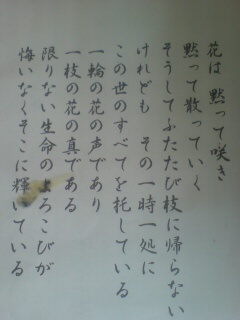 花は 黙って咲き
黙って散っていく
そうしてふたたび枝に帰らない
けれども その一時一処に
この世のすべてを托している
一輪の花の声であり
一枝の花の真である
限りない生命のよろこびが
悔いなくそこに輝いている